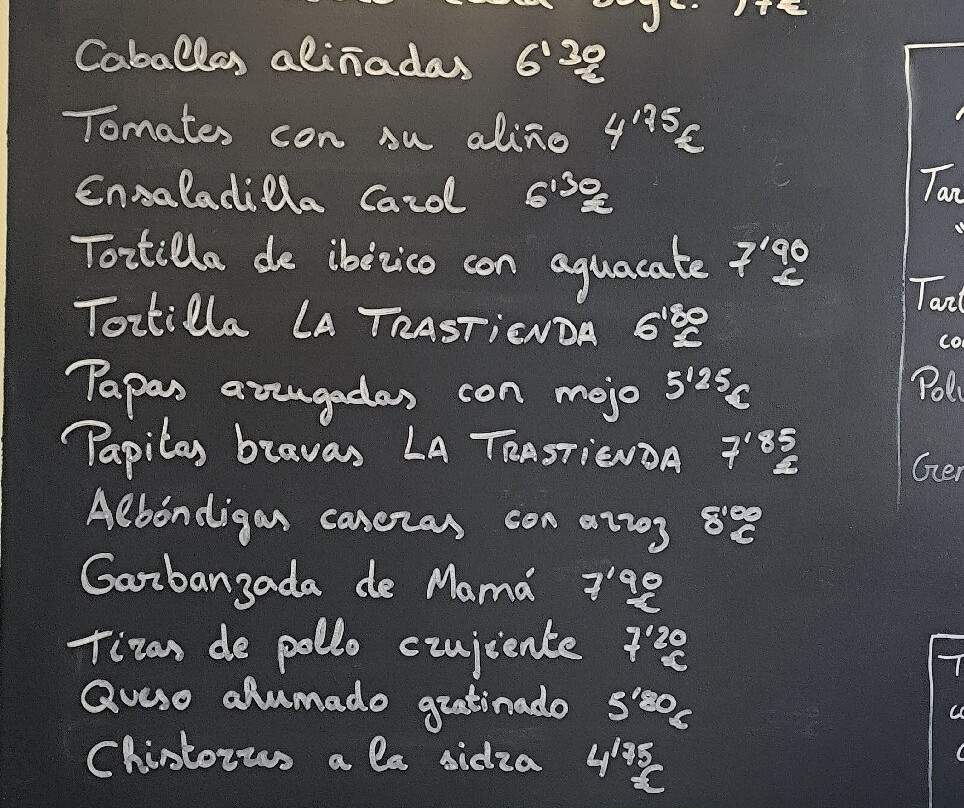 Caballas aliñadas 6'30€
Tomates con su aliño 4'75€
Ensaladilla Carol 6'30€
Tortilla de ibérico con aguacate 7'90€
Tortilla LA TRASTiENDA 6'80€
Papas arrugadas con mojo 5'25€
Papitas bravas LA TRASTiENDA 7'85€
Albóndigas caseras con arroz 8'00€
Garbanzada de Mamá 7'90€
Tiras de pollo crujiente 7'20€
Queso ahumado gratinado 5'80€
Chistorras a la sidra 4'75€